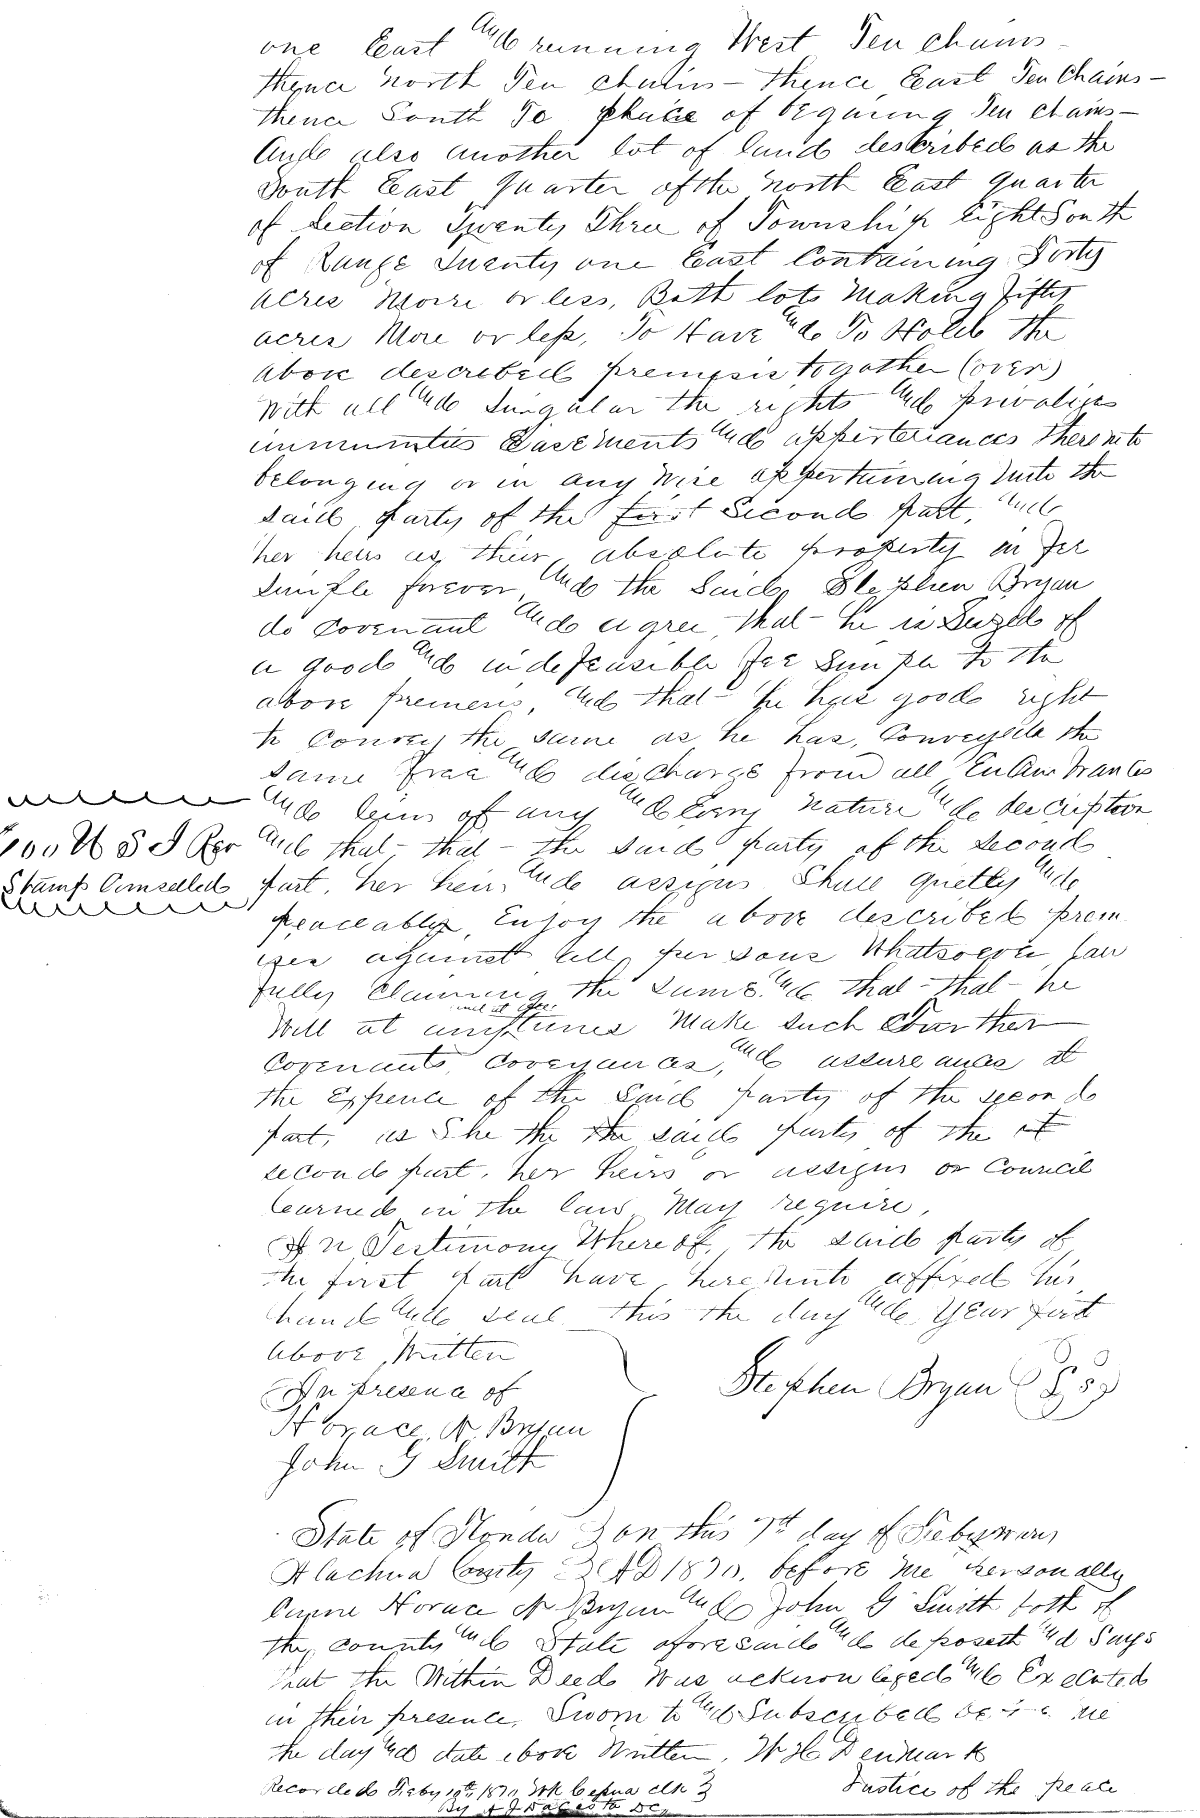 one East And running West Ten chains -
thence north Ten chains - thence East Ten Chains -
thence South To place of begining Ten chains -
And also another lot of land described as the
South East quarter of the north East quarter
of Section Twenty Three of Township Eight South
of Range Twenty one East Containing Forty
acres More or less, Both lots Making Fifty
acres More or less, To Have And To Hold the
above described premisis togather (over)
With all And Singular the rights And privaliges
immunities Easements And appertenances thereunto
belonging or in any wise appertaining Unto the
said party of the first Second part, And
her heirs as their absolute property in Fee
Simple forever And the Said Stephen Bryan
do Covenant And agree that - he is Seized of
a good And indefeasible Fee Simple to the
above premesis, And that - he has good right
to Convey the same as he has, Conveyed the
same free And discharge from all Encumbrances
And leins of any And Every Nature And description
And that - that - the said party of the second
part, her heirs And assigns Shall quietly And
peaceably Enjoy the above described prem
ises against all persons Whatsoever law
fully Claiming the same. And that - that - he
Will at any times Make such Further
Covenants, Coveyances, And assureances at
the Expence of the Said party of the second
part, as She the the said party of the
second part, her heirs or assigns or Council
learned in the law May require,
In Testimony Whereof, the said party of
the first part have hereunto affixed his
hand And seal this the day And Year first
above Written
In presence of
Stephen Bryan
Horace N. Bryan
John G Smith
U S I Rev
Stamp Canselled
State of Florida } on this 7th day of Febyuary
Alachua County } AD 1870, before me personally
Came Horace N Bryan And John G Smith both of
the county And State aforesaid And deposeth And Says
that the Within Deed Was acknowleged And Executed
in their presence, Sworn to And Subscribed before me
the day And date above Written, W H Denmark
Justice of the peace
Recorded Feby 1870, Clk
By